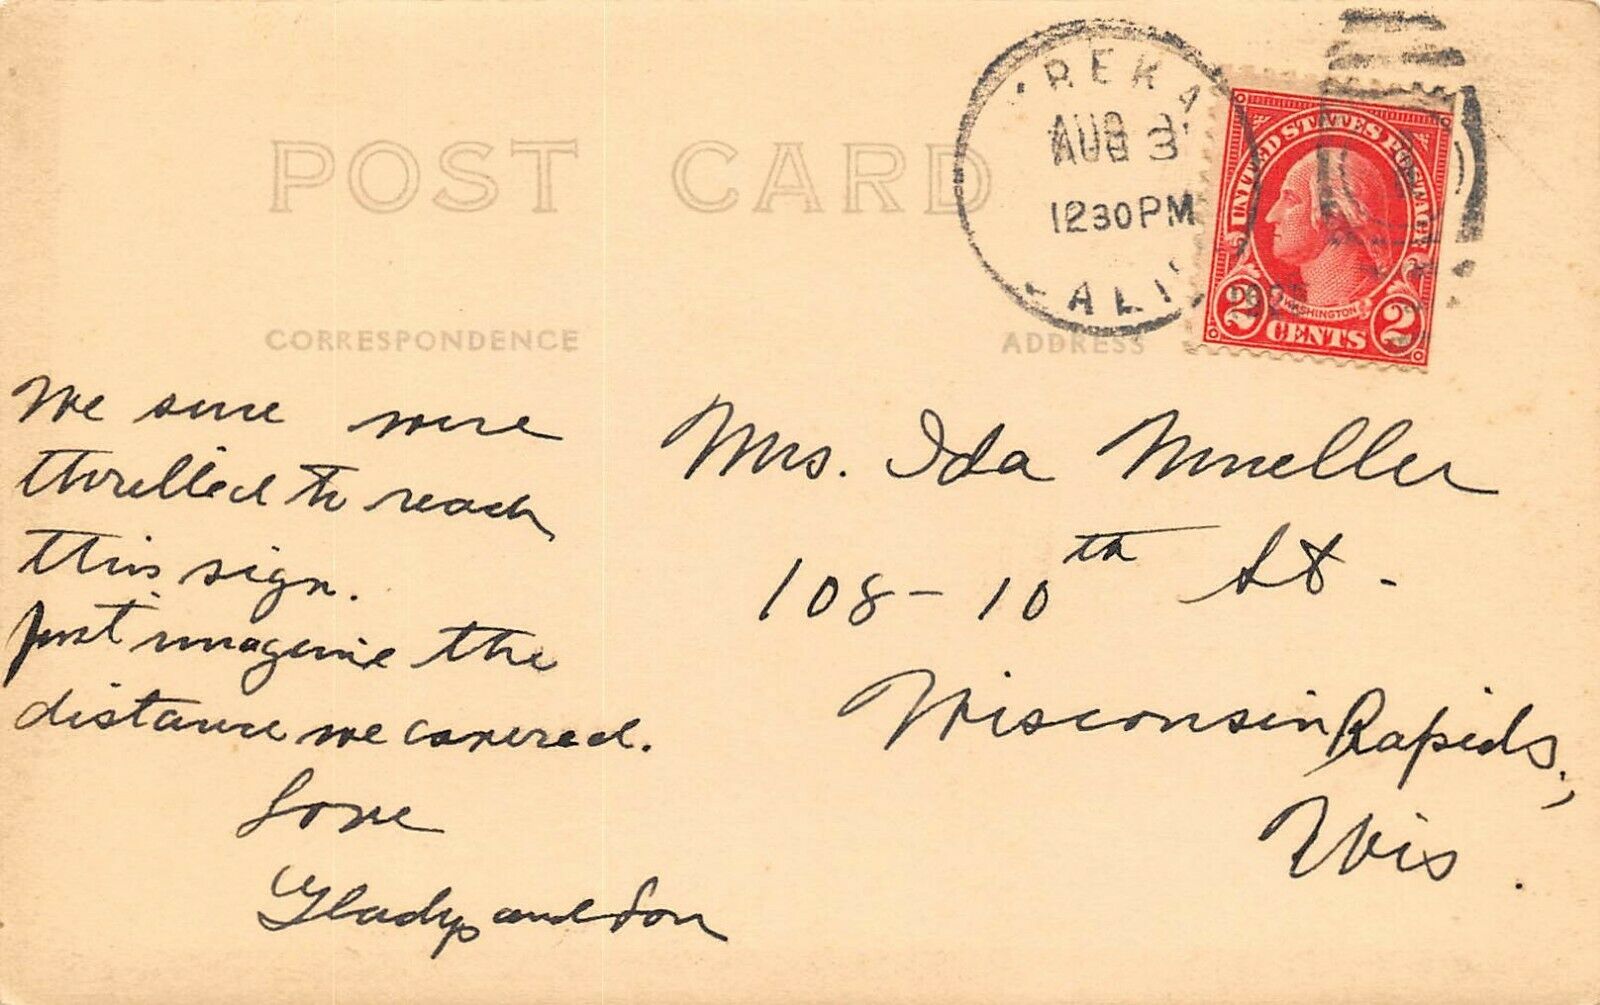 POST CARD
CORRESPONDENCE
ADDRESS
YREKA
AUG 3
12 30 PM
CALIF
UNITED STATES POSTAGE
WASHINGTON
2 CENTS 2
We sure were
thrilled to reach
this sign.
Just imagine the
distance we covered.
Love
Gladys and Son
Mrs. Ida Mueller
108-10th St.
Wisconsin Rapids,
Wis.